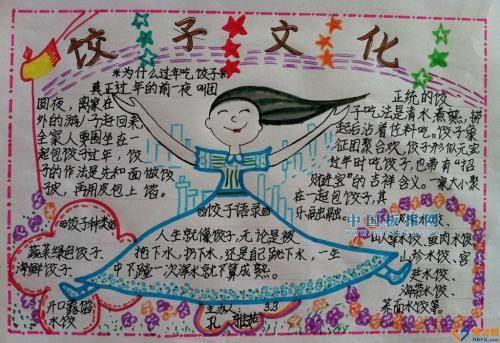 饺子文化
*为什么过年吃饺子*
真正过年的前一夜叫团
圆夜,离家在
外的游人子赶回来,
全家人要围坐在一
起包饺子过年,饺
子的作法是先和面做饺
子皮,再用皮包上馅。
正统的饺
子吃法是清水煮熟,捞
起后沾着佐料吃。饺子象
征团聚合欢,饺子形似元宝
过年时吃饺子,也带有“招
财进宝”的吉祥含义。一家大小聚
在一起包饺子,其
乐融融
饺子种类
蔬菜绿色饺子、
海鲜饺子
开口露馅
水饺
饺子语录
人生就像饺子,无论是被
拖下水,扔下水,还是自己跳下水,一生
中下蹚一次浑水就不算成熟。
水饺、
水饺、鱼肉水饺、
山珍水饺、宫
廷水饺、
海带水饺、
菜面水饺等。
主办人
3.3
孔
中国板报网
hbrc.com